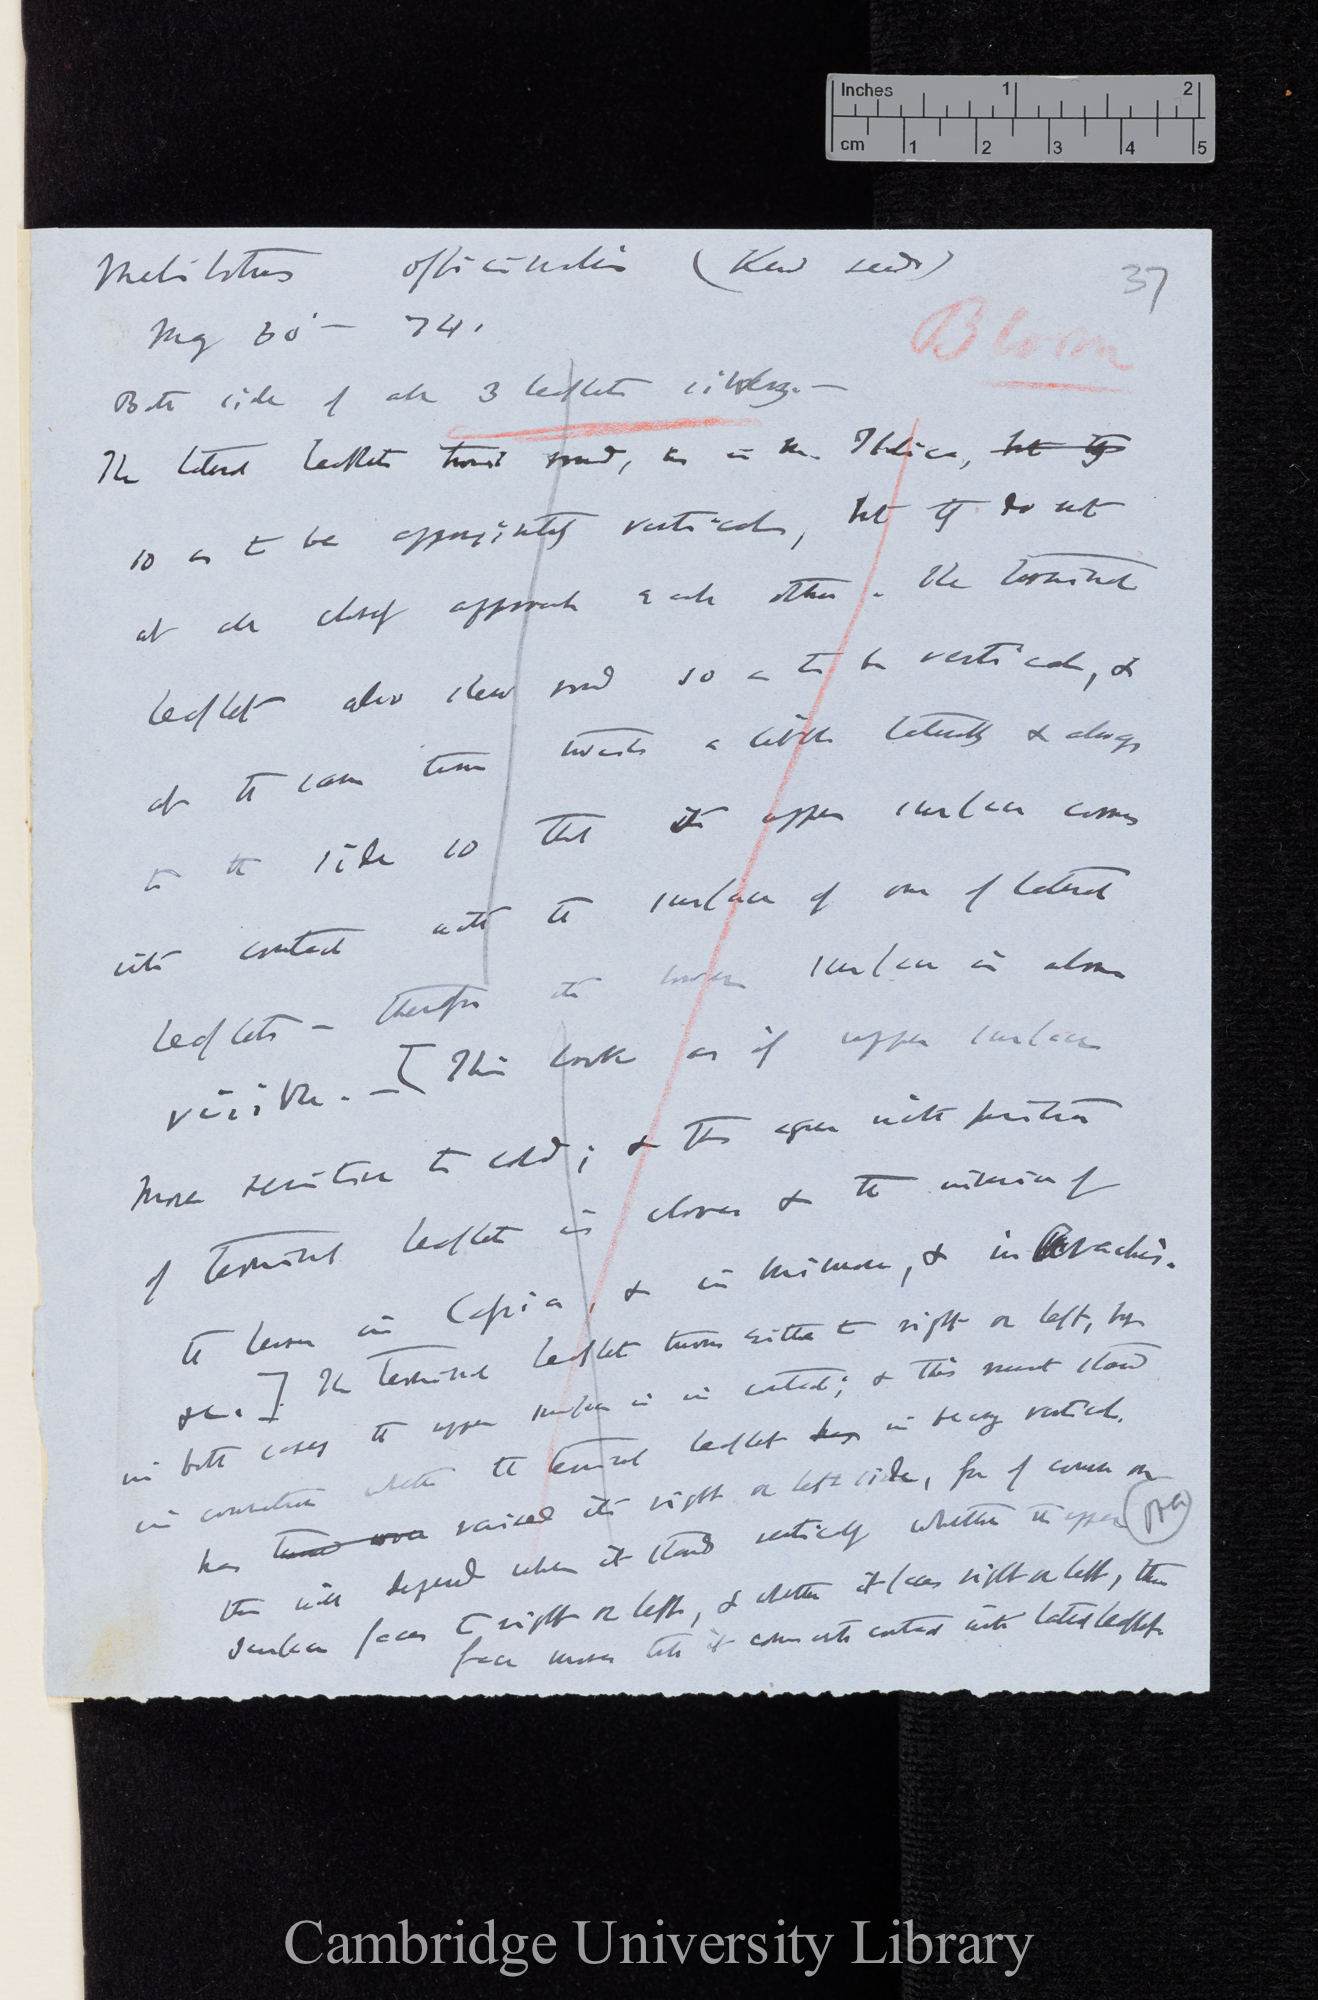 Inches 1 2
cm 1 2 3 4 5
Melilotus officinalis (Kew seeds)
37
May 30' — 74.
Bloom
Both side of all 3 leaflets silvery. —
The lateral leaflets twist round, as in M. Italica, but they
so as to be approximately vertical, but they do not
at all closely approach each other. The terminal
leaflet also slews round so as to be vertical, &
at the same time twists a little laterally & always
to the side so that its upper surface comes
into contact with the surface of one of lateral
leaflets — therefore its lower surface is alone
visible. — [This looks as if upper surface
more sensitive to cold; & this agrees with position
of terminal leaflet in clover & the interior of
the leaves in Cassia, & in mimosa, & in Arachis.
&c.] The terminal leaflet turns either to right or left, but
in both cases the upper surface is in contact; & this must stand
in connection whether the terminal leaflet in becoming vertical.
has turned over raised its right or left side, for of course on
this will depend when it stands vertically whether the upper
surface faces to right or left, & whether it faces right or left, then
face moves till it comes into contact with lateral leaflet
Cambridge University Library